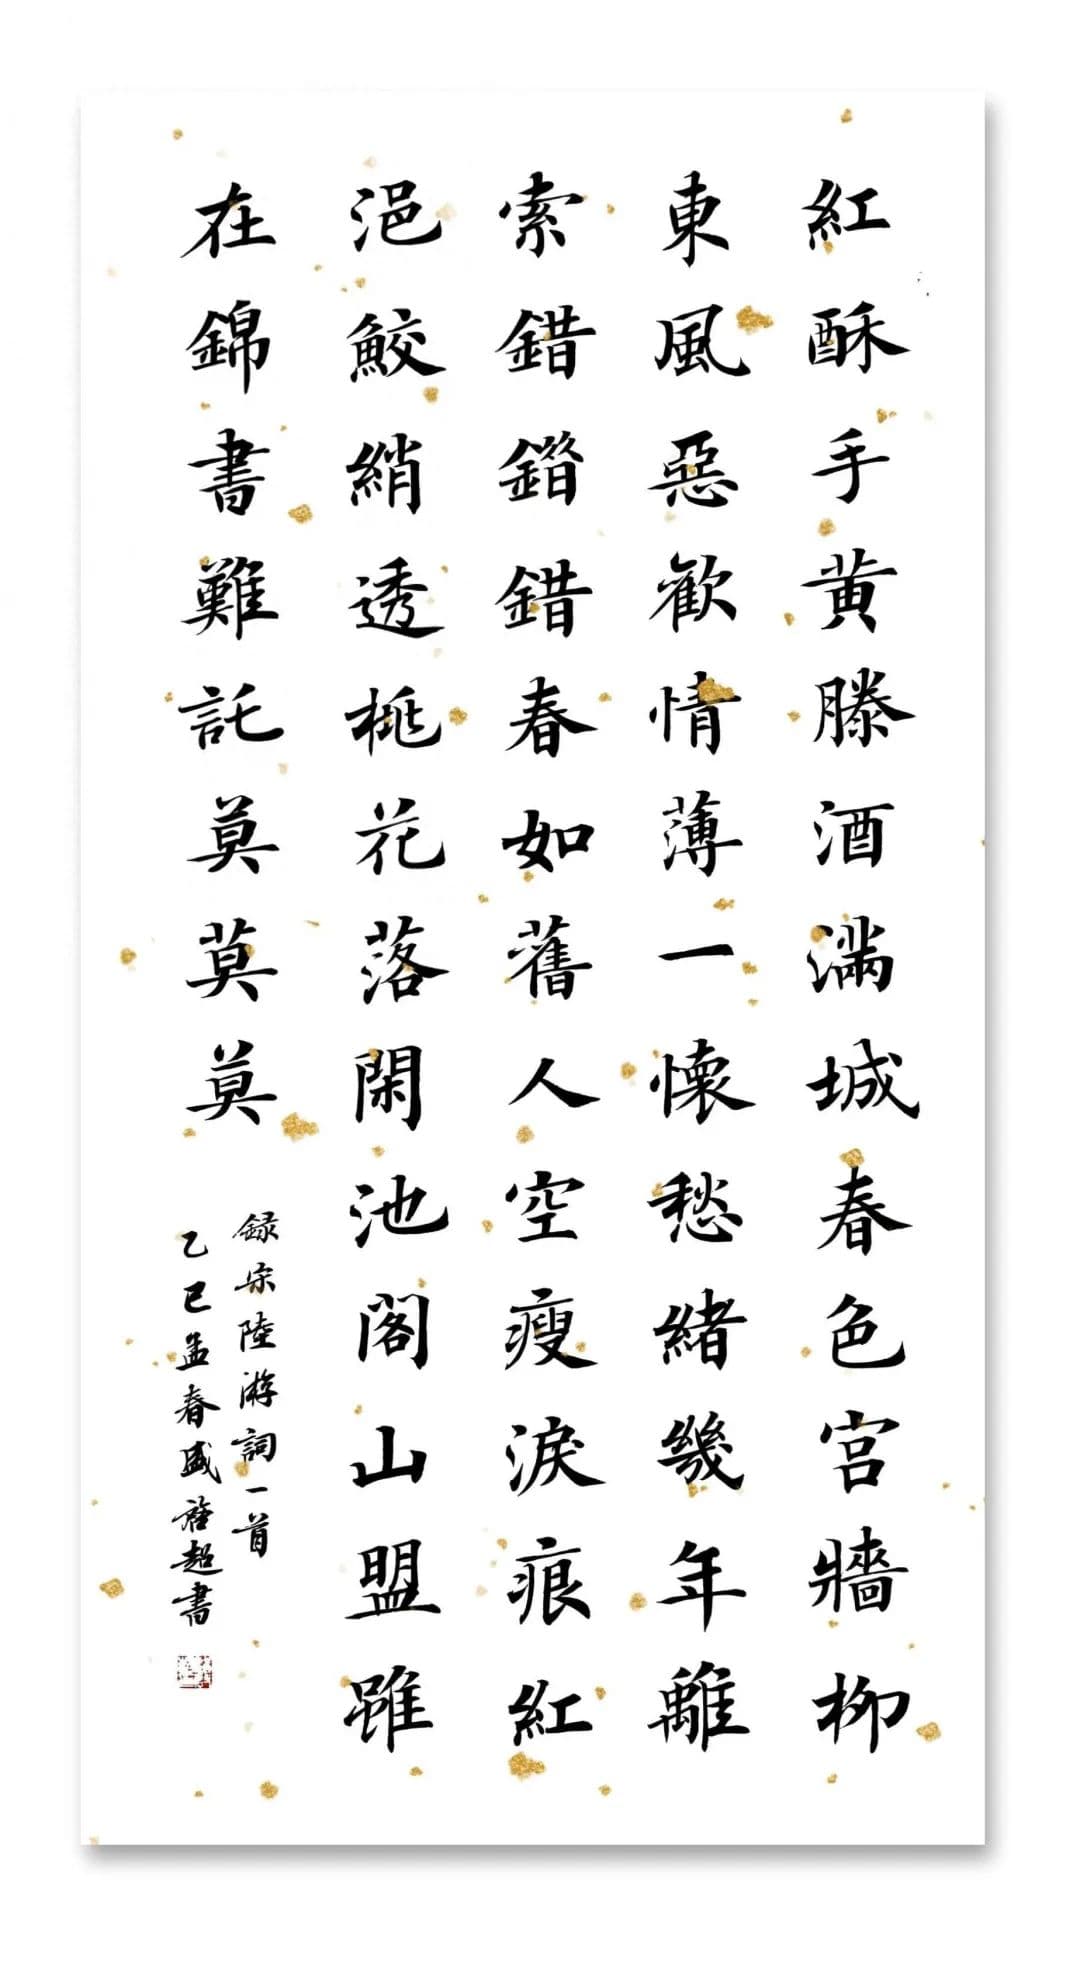 紅酥手黄滕酒滿城春色宫牆柳
東風惡歡情薄一懷愁緒幾年離
索錯錯錯春如舊人空瘦淚痕紅
浥鮫綃透桃花落閑池閣山盟雖
在錦書難託莫莫莫
録宋陸游詞一首
乙巳孟春盛 超書